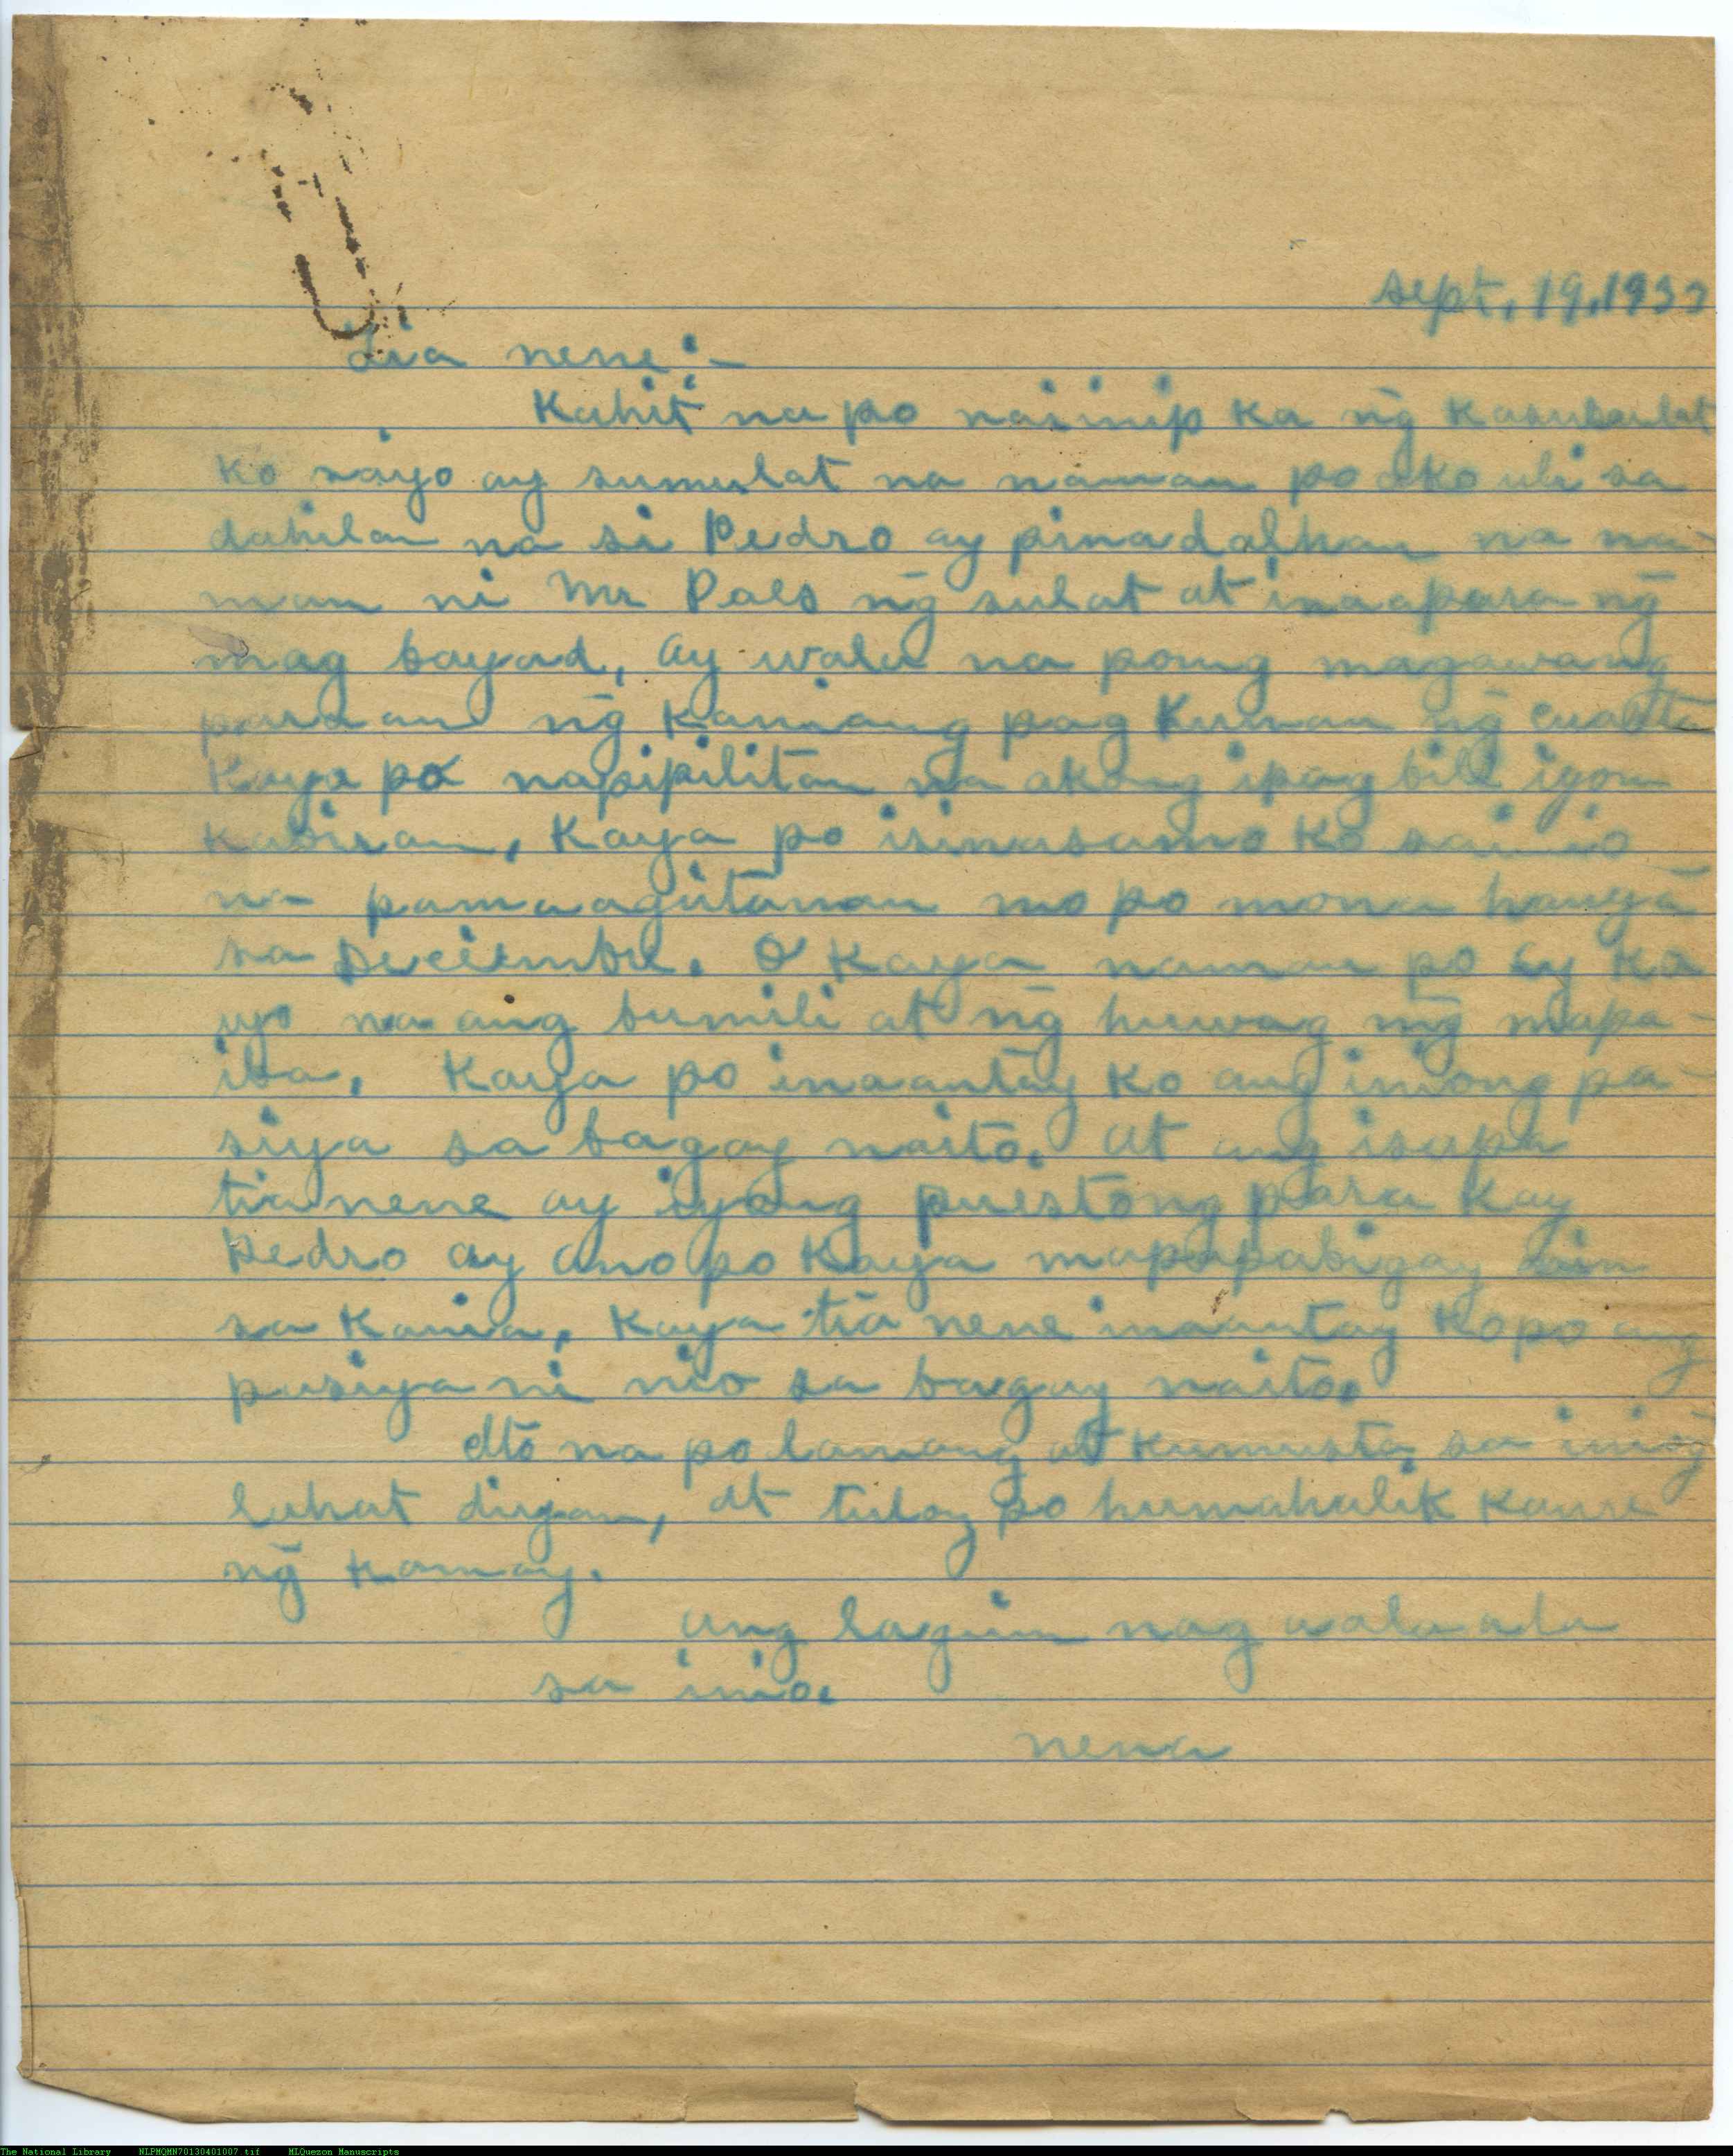 sept, 19, 1933
Tia nene:-
Kahit na po naiinip ka ng̃ kasusulat
ko sayo ay sumulat na naman po ako uli sa
dahilan na si Pedro ay pinadalhan na na-
man ni Mr Paes ng̃ sulat at inaapura ng̃
mag bayad, ay wala na poung magawang
paraan ng̃ kaniang pag kunan ng̃ cualta
Kaya po napipilitan na akong ipag bili
kabiran, Kaya po isinasamo ko sainio
na pamaagitanan mo po mona hangã
sa Deciembre. O kaya naman po ay ka
yo na ang bumili at ng̃ huwag ng̃ mapa-
iba. Kaya po inaantay ko ang iniong pa-
siya sa bagay naito. at ang isapa
tia nene ay iyong puestong para kay
Pedro ay ano po kaya mapapabigay
sa kania, kaya tia nene inaantay kopo ang
pasiya ni nio sa bagay naito.
dto na po lamang at kumusta sa
lahat diyan, at tuloy po humahalik kame
ng̃ kamay.
ang laguin nag aalaala
sa inio.
nena
The National Library NLPMQMN70130401007.tif MLQuezon Manuscripts